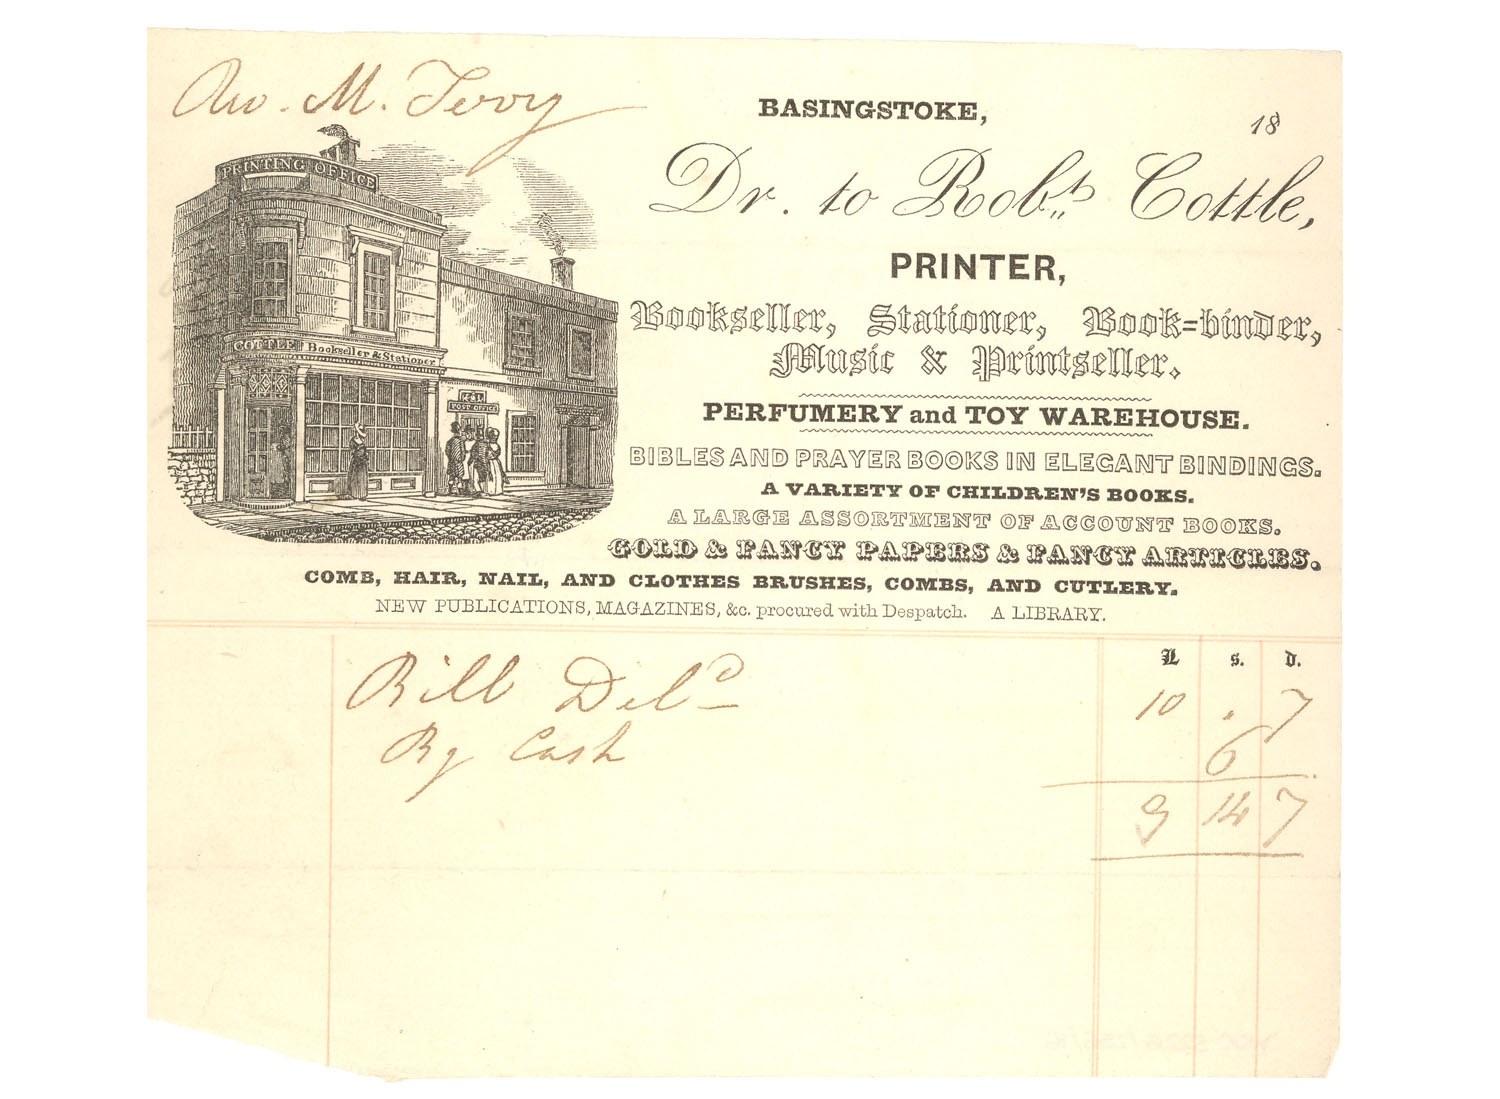 M. Terry
BASINGSTOKE, 18
Dr. to Robt. Cottle,
PRINTING OFFICE
PRINTER,
Bookseller, Stationer, Book=binder,
Music & Printseller.
COTTLE Bookseller & Stationer
POST OFFICE
PERFUMERY and TOY WAREHOUSE.
BIBLES AND PRAYER BOOKS IN ELEGANT BINDINGS.
A VARIETY OF CHILDREN'S BOOKS.
A LARGE ASSORTMENT OF ACCOUNT BOOKS.
GOLD & FANCY PAPERS & FANCY ARTICLES.
COMB, HAIR, NAIL, AND CLOTHES BRUSHES, COMBS, AND CUTLERY.
NEW PUBLICATIONS, MAGAZINES, &c. procured with Despatch. A LIBRARY.
L s. d.
Bill Deld 10 . 7
By Cash 6
9 14 7